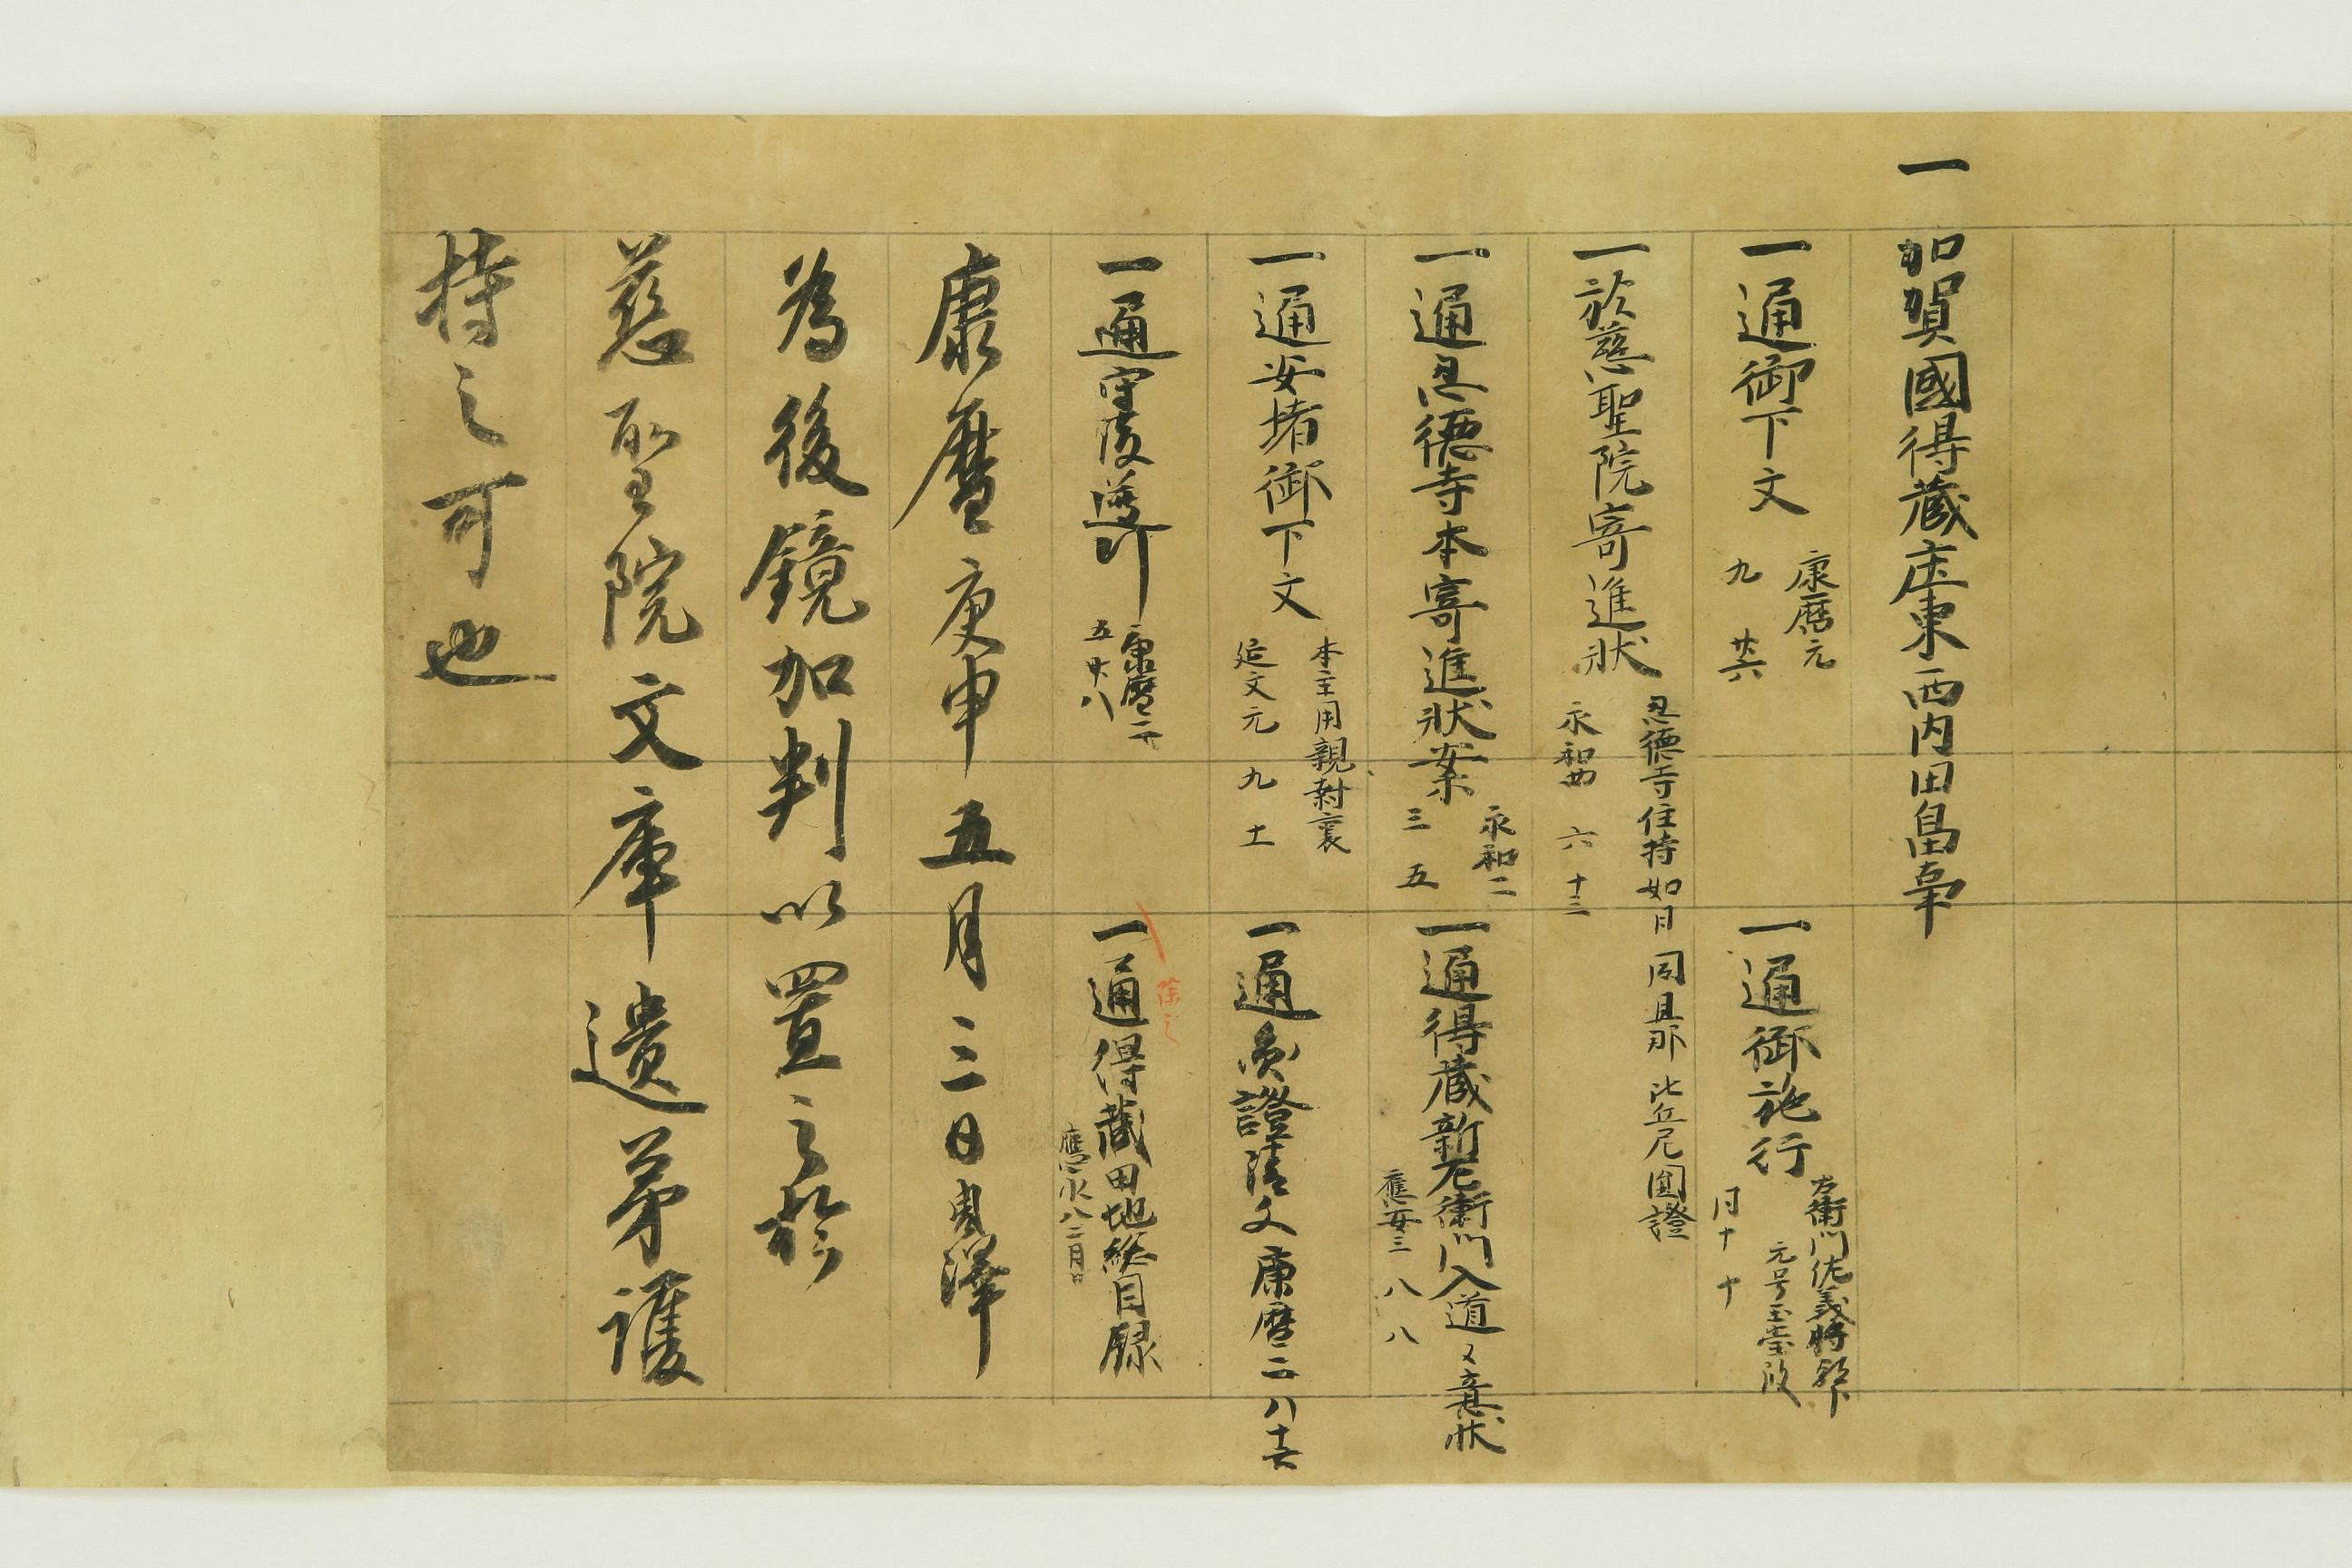 一 加賀國得蔵庄東西内田畠事
一通御下文 康暦元 九 廿六
一通御施行 左衛門佐義将 元号玉堂改 同十 十
一於慈聖院寄進狀 忍徳寺住持如月 同旦那 比丘尼圓證 永和四 六 十三
一通忍德寺本寄進狀案 永和二 三 五
一通得蔵新左衛門入道 意狀 應安三 八 八
一通安堵御下文 本主用親封裏 延文元 九 十一
一通圓證請文 康暦二 八 十六
一通守護遵行 康暦二 五 廿八
一通得蔵田地総目録 應永八二月日
除之
康暦庚申五月三日周澤
為後鏡加判以置之於
慈聖院文庫遺弟護
持之可也